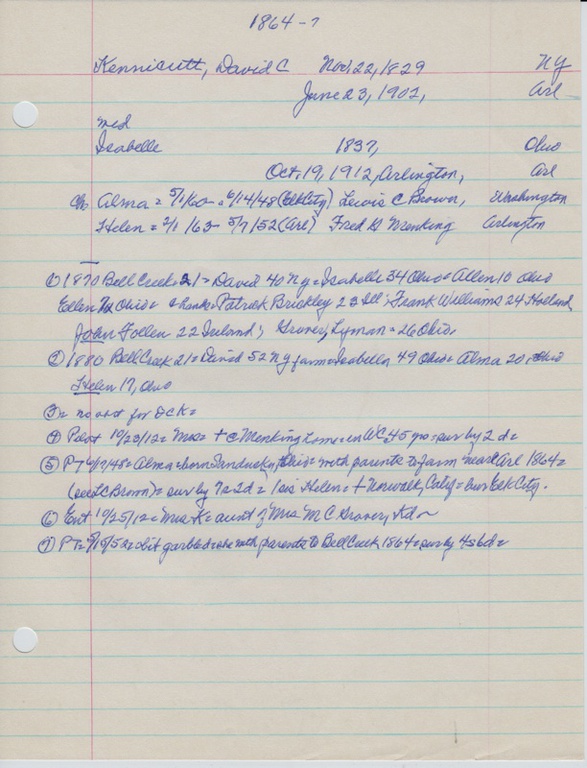 1864-?
Kennicutt, David C Nov. 22, 1829 NY
June 23, 1902, Arl
md
Isabelle 1837, Ohio
Oct. 19, 1912, Arlington, Arl
Ch Alma = 5/1/60 = 6/14/48 (Elk City) Lewis C Brown, Washington
Helen = 2/1/63 - 5/7/52 (Arl) Fred G Menking Arlington
① 1870 Bell Creek 21 = David 40 NY = Isabelle 34 Ohio = Allen 10 Ohio
Ellen Ohio = + hands = Patrick Brickley 23 Ill; Frank Williams 24 Holland
John Follen 22 Ireland; Grover, Lyman = 26 Ohio.
② 1880 Bell Creek 21 = David 52 NY farm = Isabella 49 Ohio = Alma 20, Ohio
Helen 17, Ohio
③ = no obt for DCK =
④ Pilot 10/23/12 = Mrs = + @ Menking home = in WC 45 yrs = sur by 2 d =
⑤ PT 6/17/48 = Alma = born Sandusky, Ohio = with parents to farm near Arl 1864 =
(see LC Brown) = sur by 2d = 1 sis Helen = + Norwalk, Calif = bur Elk City.
⑥ Ent 10/25/12 = Mrs K = aunt of Mrs M C Grover,
⑦ PT = obit garbled = she with parents to Bell Creek 1864 = sur by 4s 6d =